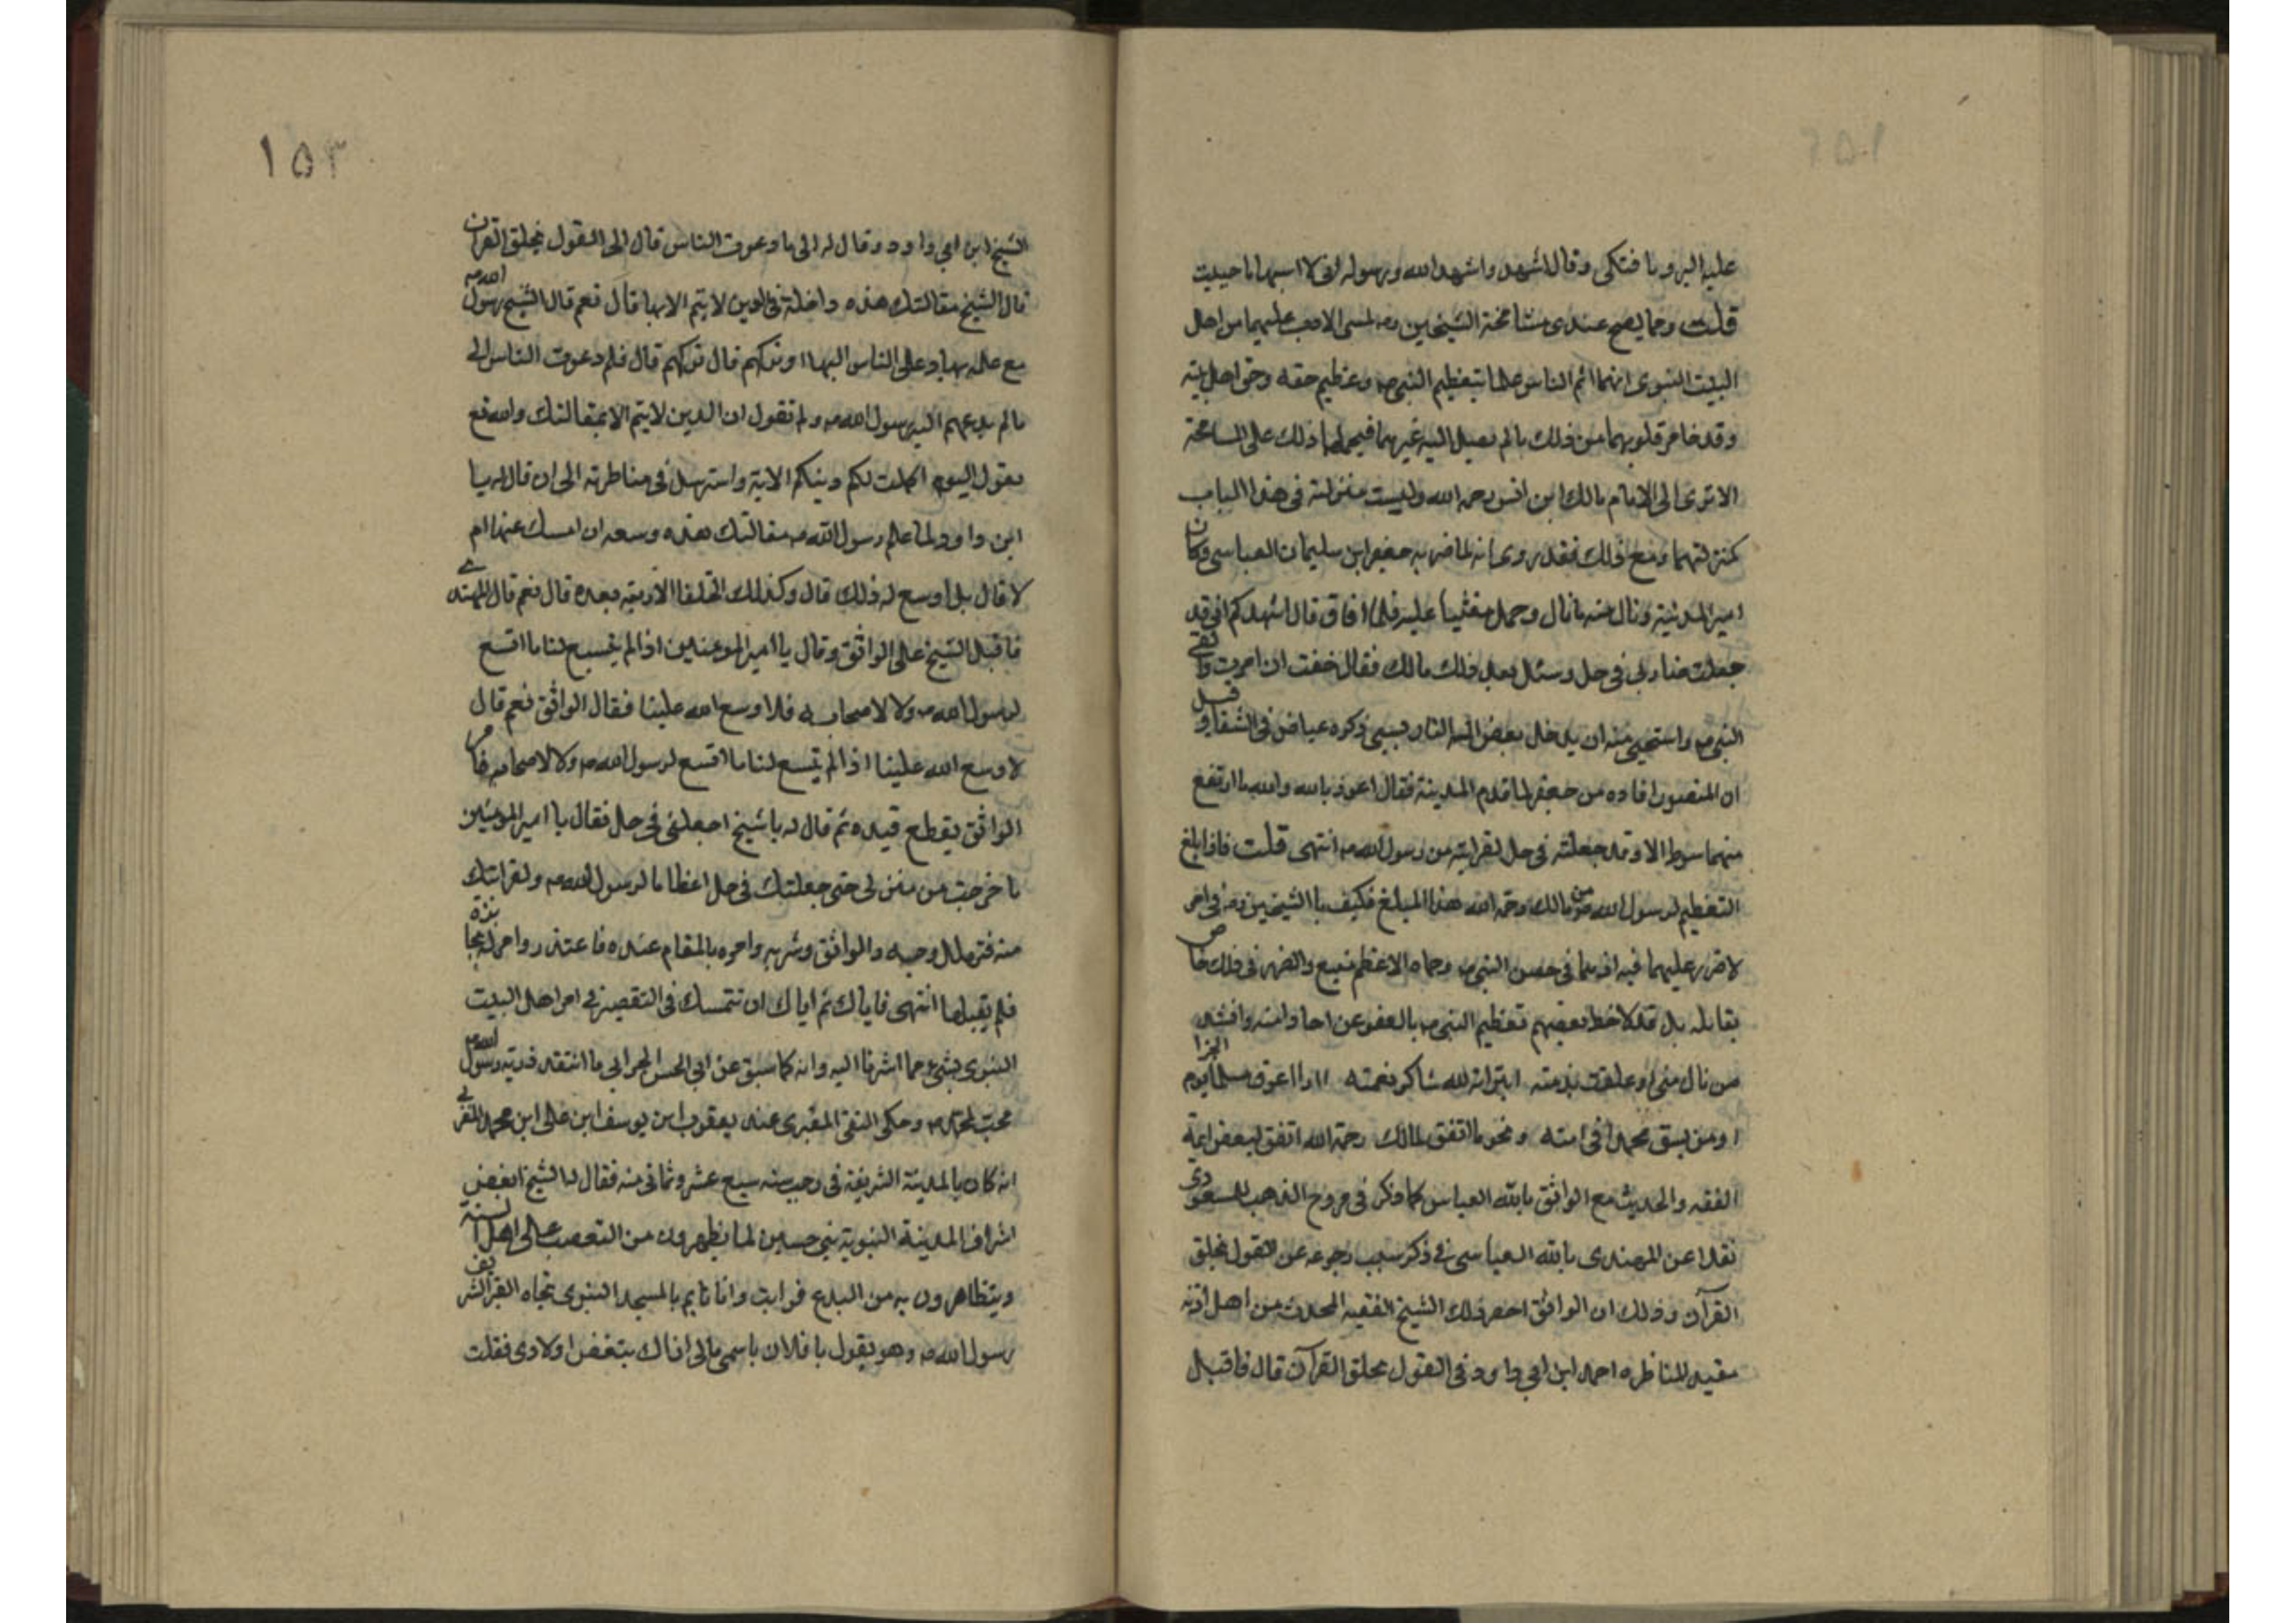 عليه اليه وما فتكى وقال اشهد واشهد الله ورسوله انى لا اسبهما ما حييت
قلت ومما يصح عندى مسامحة الشيخين رضه لمسى الادب عليهما من اهل
البيت النبوى انهما اتم الناس علما بتعظيم النبى صه وعظيم حقه وحق اهل بيته
وقد خامر قلوبهما من ذلك ما لم يصل اليه غيرهما فيحملهما ذلك على المسامحة
الا ترى الى الامام مالك ابن انس رحمه الله وليست منزلته فى هذا الباب
كمنزلتهما ومع ذلك فقد روى انه لما ضربه جعفر ابن سليمان العباسى وكان
امير المدينة ونال منه ما نال وحمل مغشيا عليه فلما افاق قال اشهدكم انى قد
جعلت ضاربى فى حل وسئل بعد ذلك مالك فقال خفت ان اموت والقى
النبى صه واستحيى منه ان يدخل بعض اله النار بسببى ذكره عياض فى الشفا وقيل
ان المنصور اقاده من جعفر لما قدم المدينة فقال اعوذ بالله والله ما ارتفع
منهما سوط الا وقد جعلته فى حل لقرابته من رسول الله صه انتهى قلت فاذا بلغ
التعظيم لرسول الله صه من مالك رحمه الله هذا المبلغ فكيف با الشيخين رضه فى امر
لا ضرر عليهما فيه اذ هما فى حصن النبى صه وحماه الاعظم منيع والضرر فى ذلك خاص
بقايله بل قد لاحظ بعضهم تعظيم النبى صه بالعفو عن احاد امته وانشد
من نال منى او علقت بذمته ابرأته لله شاكر نعمته أأرى اعوق مسلما يوم الجزا
او من يسق محمدا فى امته ونحو ما اتفق لمالك رحمة الله اتفق لبعض ايمة
الفقه والحديث مع الواثق بالله العباس كما ذكر فى مروج الذهب للمسعودى
نقلا عن المهتدى بالله العباسى فى ذكر سبب رجوعه عن القول بخلق
القرآن وذلك ان الواثق احضر ذلك الشيخ الفقيه المحدث من اهل اذنه
مقيد للمناظره احمد ابن ابى داود فى القول بخلق القرآن قال فاقبل
١٥٣
الشيخ ابن ابى داود وقال له الى ما دعوت الناس قال الى القول بخلق القران
قال الشيخ مقالتك هذه داخلة فى الدين لا يتم الا بها قال نعم قال الشيخ رسول الله صه
مع علمه بها دعى الناس اليها او تركهم قال تركهم قال فلم دعوت الناس الى
ما لم يدعهم اليه رسول الله صه ولم تقول ان الدين لا يتم الا بمقالتك والله تع
يقول اليوم اكملت لكم دينكم الاية واسترسل فى مناظرته الى ان قال له يا
ابن داود لما علم رسول الله صه مقالتك هذه وسعه ان امسك عنها ام
لا قال بل اوسع له ذلك قال وكذلك الخلفا الاربعة بعده قال نعم قال المهتدى
فاقبل الشيخ على الواثق وقال يا امير المومنين اذا لم يتسع لنا ما اتسع
لرسول الله صه ولا لاصحابه فلا اوسع الله علينا فقال الواثق نعم قال
لا وسع الله علينا اذا لم يتسع لنا ما اتسع لرسول الله صه ولا لاصحابه فامر
الواثق بقطع قيده ثم قال له يا شيخ اجعلنى فى حل فقال يا امير المومنين
ما خرجت من منزلى حتى جعلتك فى حل اعظاما لرسول الله صه ولقرابتك
منه فتهلل وجه الواثق وسر به وامره بالمقام عنده فاعتذر وامر له بجايزة
فلم يقبلها انتهى فاياك ثم اياك ان تتمسك فى التقصير فى امر اهل البيت
النبوى بشىء مما اشرنا اليه وانه كما سبق عن ابى الحسن الحرالى ما انتقد ذريته رسول الله صه
محب لمحمد صه وحكى التقى المقرى عند يعقوب ابن يوسف ابن على ابن محمد المقرى
انه كان بالمدينة الشريفة فى رجب سنه سبع عشر وثمانى منه فقال له الشيخ ابغض
اشراف المدينة النبوية بنى حسين لما يظهرون من التعصب على اهل السنة
ويتظاهرون به من البدع فرايت وانا نايم بالمسجد النبوى تجاه القبر الشريف
رسول الله صه وهو يقول يا فلان باسمى مالى اراك تبغض اولادى فقلت